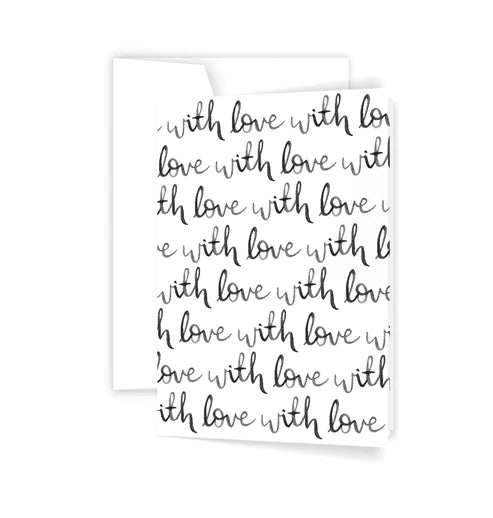 with love with lov
love with love with
th love with love w
e with love with l
with love with love
h love with love wi
love with love with
ith love with love